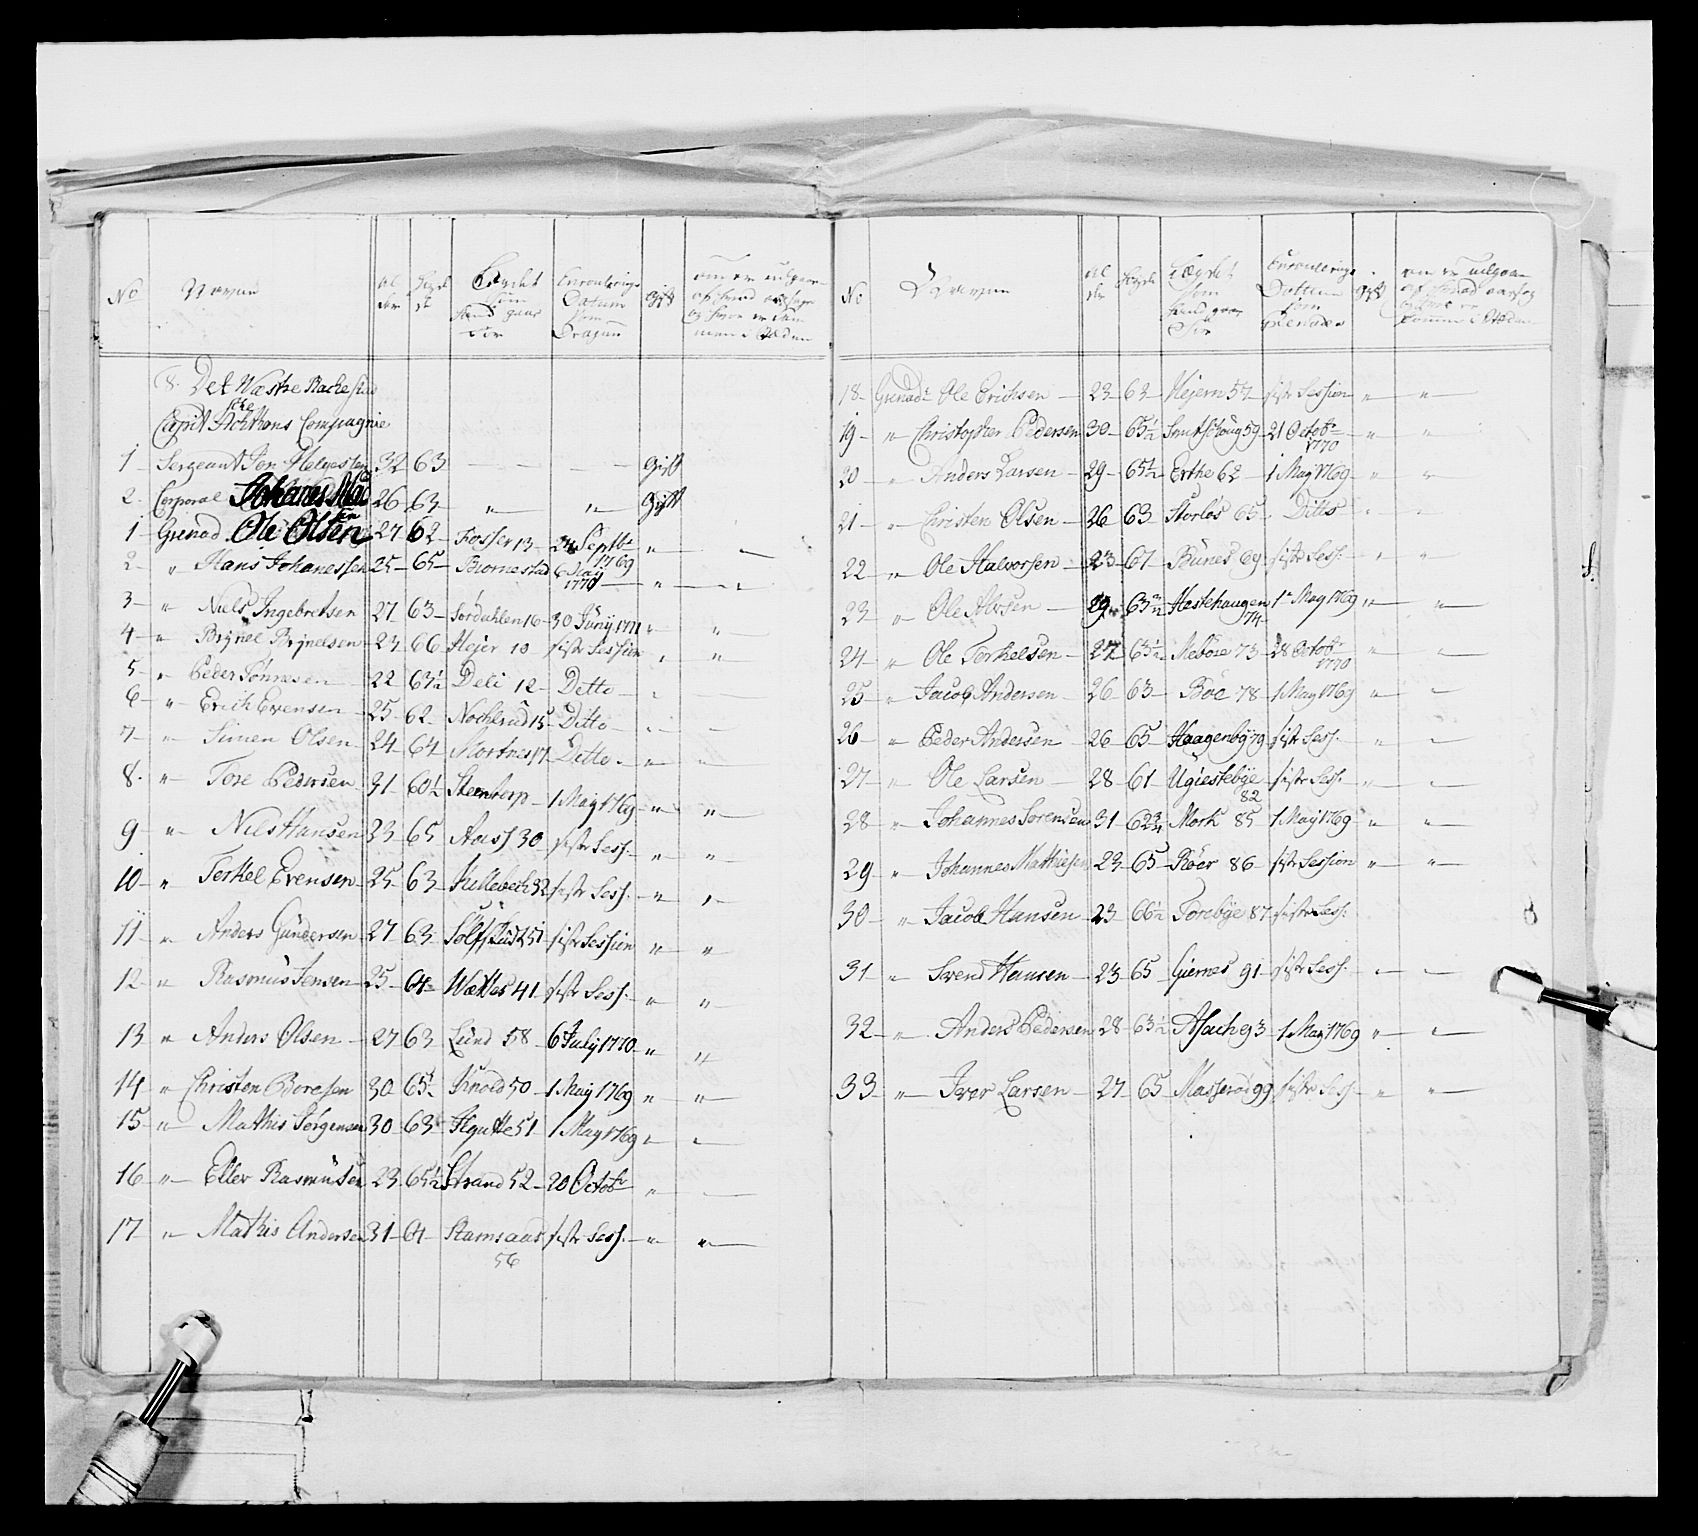 No Navn Al der Høyde Lægdet som hand gaar for Enroulerings Datum som Dragun Gift
8. Det Wæstre Rackestad
ske
Capit Achthons Compagnie
1 Sergeant Jon Helgesten 32 63 — — — Gift
2. Corporal Johanes Mad 26 63 " " Gift
sen
1 Grenad. Ole Olsen 27 62 Fosser 13 24 Septbr 1769 " "
2 " Hans Johanessen 25 65 Biornestad 6 July 1770 " "
3 " Niels Ingebretsen 27 63 Sørduhlen 16 30 Juny 1771 " "
4 " Brynel Brynelsen 23 66 Hejer 10 siste Session " "
5 " Peder Sønnesen 22 63½ Deli 12 Ditto " "
6 " Erich Evensen 25 62 Nochlrud 15 Ditto " "
7 " Simen Olsen 24 64 Mortnes 17 Ditto " "
8. " Tore Pedersen 31 60½ Steentorp 1 May 1769 " "
9 " Nils Hansen 23 65 Aass 30 siste Sess. " "
10 " Torkel Evensen 25 63 Kullebech 32 siste Sess. " "
11 " Anders Gundersen 27 63 51 siste Session " "
12 " Rasmus Jensen 25 64 Wættes 41 siste Sess. " "
13 " Anders Olsen 27 63 Lund 58 6 July 1770 " "
14 " Christen Boresen 30 65½ Knold 50 1 May 1769 " "
15 " Mathis Jørgensen 30 63 Hgutte 51 1 May 1769 " "
16 " Eller Rasmusen 23 65½ Strand 52 20 Octobr " "
17 " Mathis Andersen 31 64 Stamsaas siste Sess. " "
56
No Navn Al der Høyde Lægdet som hand gaar for Enroulerings Datum som Grenader Gift
18 Grenadr Ole Erichsen 23 62 Hejern 57 siste Session " "
19 " Christopher Pedersen 30 65½ Smutschoug 59 21 Octobr 1770 " "
20 " Anders Larsen 29 65½ Erthe 62 1 May 1769 " "
21 " Christen Olsen 26 63 Storløs 65 Ditto " "
22 " Ole Halvorsen 23 67 Bunes 69 siste Sess. " "
23 " Ole Alvsen 29 63¾ Hastehaugen 74 1 May 1769 " "
24 " Ole Torkelsen 27 63½ Meböe 73 28 Octobr 1770 " "
25 " Jacob Andersen 26 63 Böe 78 1 May 1769 " "
26 " Peder Andersen 26 65 Haagenby 79 siste Sess. " "
27 " Ole Larsen 28 61 Ugiestebye 82 siste Sess. " "
28 " Johannes Sorensen 31 62¾ Mork 85 1 May 1769 " "
29 " Johannes Matthiesen 23 65 Röer 86 siste Session " "
30 " Jacob Hansen 23 66½ Torebye 87 siste Sess.
31 " Svend Hansen 23 65 Giernes 91 siste Sess. " "
32 " Anders Pedersen 28 63½ Asach 93 1 May 1769 " "
33 " Iver Larsen 27 65 Masserød 99 siste Sess. " "